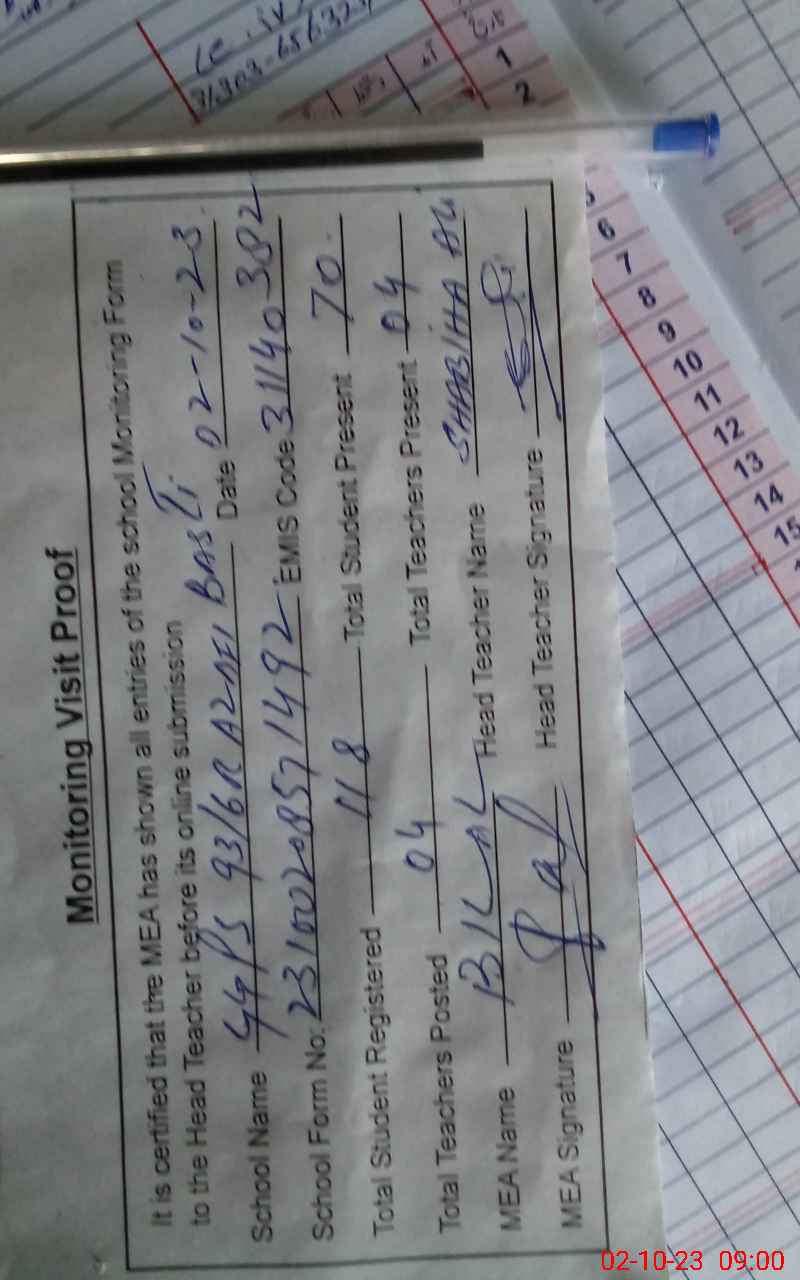 Monitoring Visit Proof
It is certified that the MEA has shown all entries of the school Monitoring Form
to the Head Teacher before its online submission
School Name GGPS 93/6R AZAFI BASTI Date 02-10-23.
School Form No: 23100208571492 EMIS Code 31140382
Total Student Registered 118 Total Student Present 70.
Total Teachers Posted 04 Total Teachers Present 04
MEA Name BILAL Head Teacher Name SHABIHA ALI
MEA Signature Head Teacher Signature
1
2
5
6
7
8
9
10
11
12
13
14
15
02-10-23 09:00